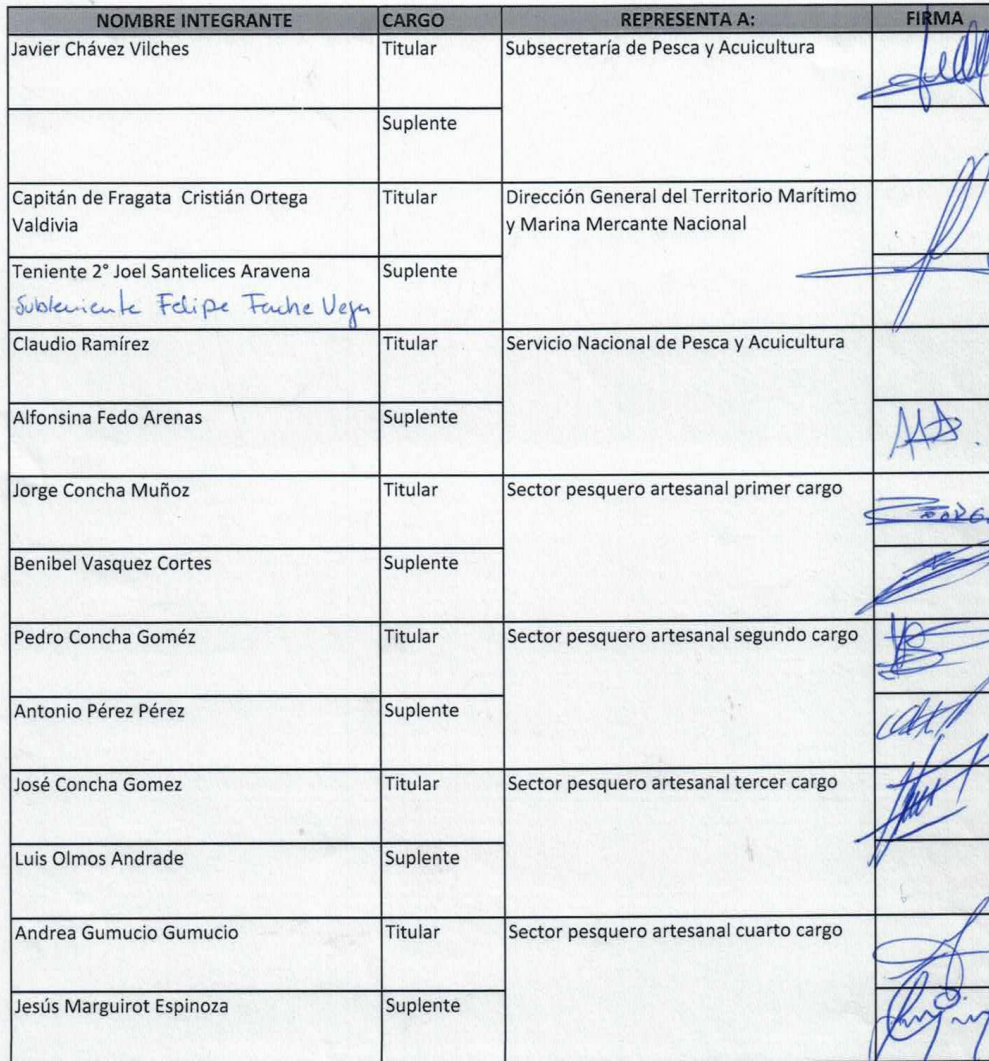 NOMBRE INTEGRANTE CARGO REPRESENTA A: FIRMA
Javier Chávez Vilches Titular Subsecretaría de Pesca y Acuicultura
Suplente
Capitán de Fragata Cristián Ortega Titular Dirección General del Territorio Marítimo
Valdivia y Marina Mercante Nacional
Teniente 2° Joel Santelices Aravena Suplente
Subteniente Felipe
Claudio Ramírez Titular Servicio Nacional de Pesca y Acuicultura
Alfonsina Fedo Arenas Suplente
Jorge Concha Muñoz Titular Sector pesquero artesanal primer cargo
Benibel Vasquez Cortes Suplente
Pedro Concha Goméz Titular Sector pesquero artesanal segundo cargo
Antonio Pérez Pérez Suplente
José Concha Gomez Titular Sector pesquero artesanal tercer cargo
Luis Olmos Andrade Suplente
Andrea Gumucio Gumucio Titular Sector pesquero artesanal cuarto cargo
Jesús Marguirot Espinoza Suplente